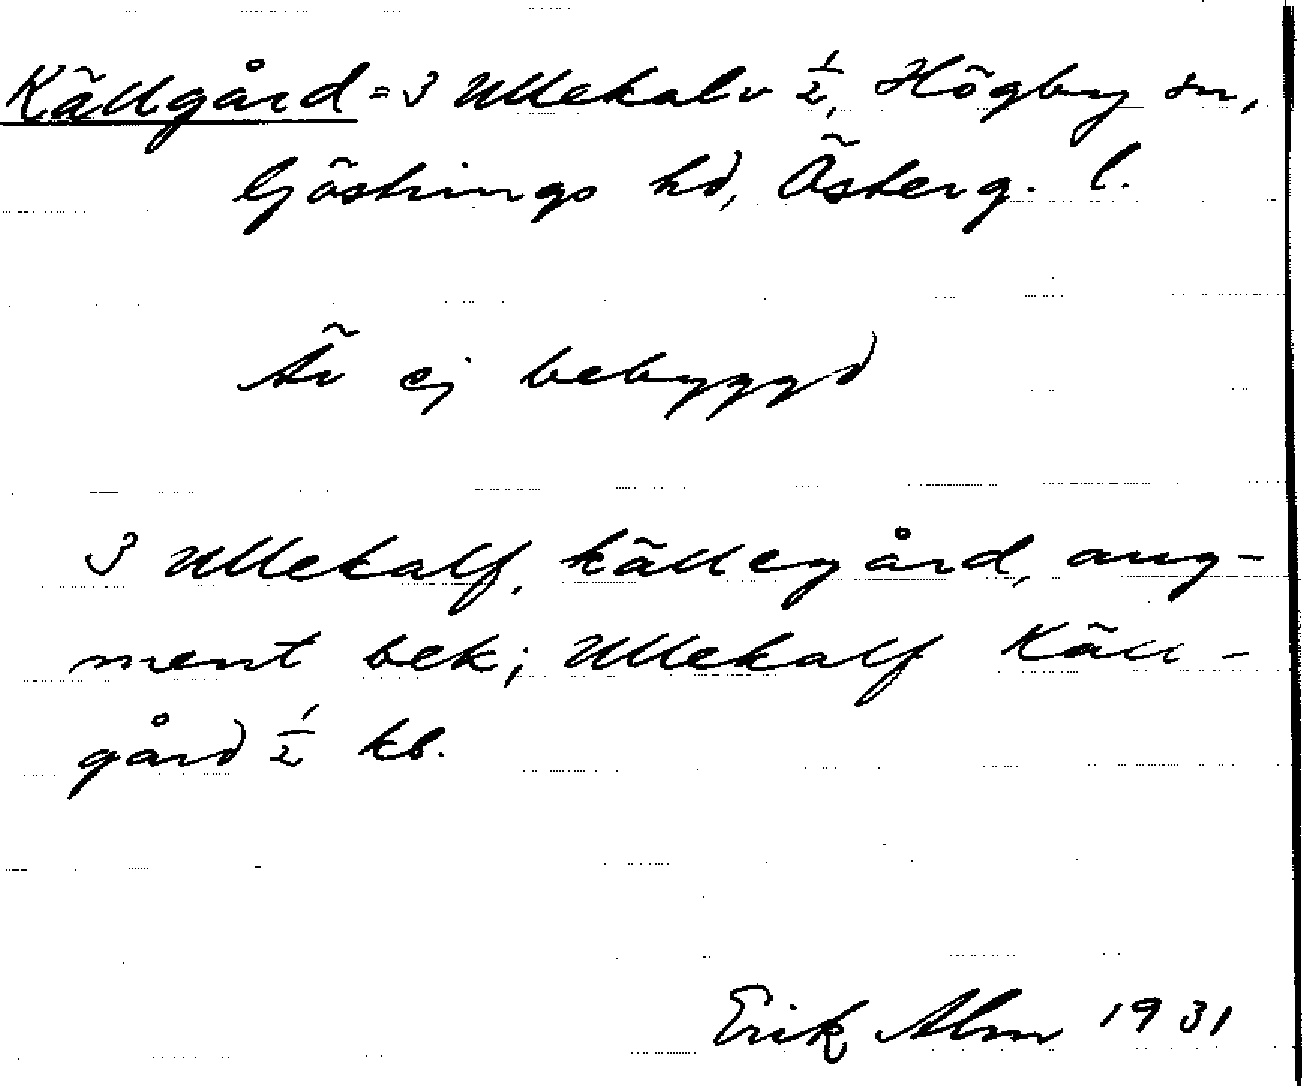 Källgård = 3 Ullekalv ½, Högby sn,
Göstrings hd, Österg. l.
Är ej bebyggd
3 Ullekalf, källegård, aug-
ment bek; Ullekalf Käll-
gård ½ kb.
Erik Alm 1931